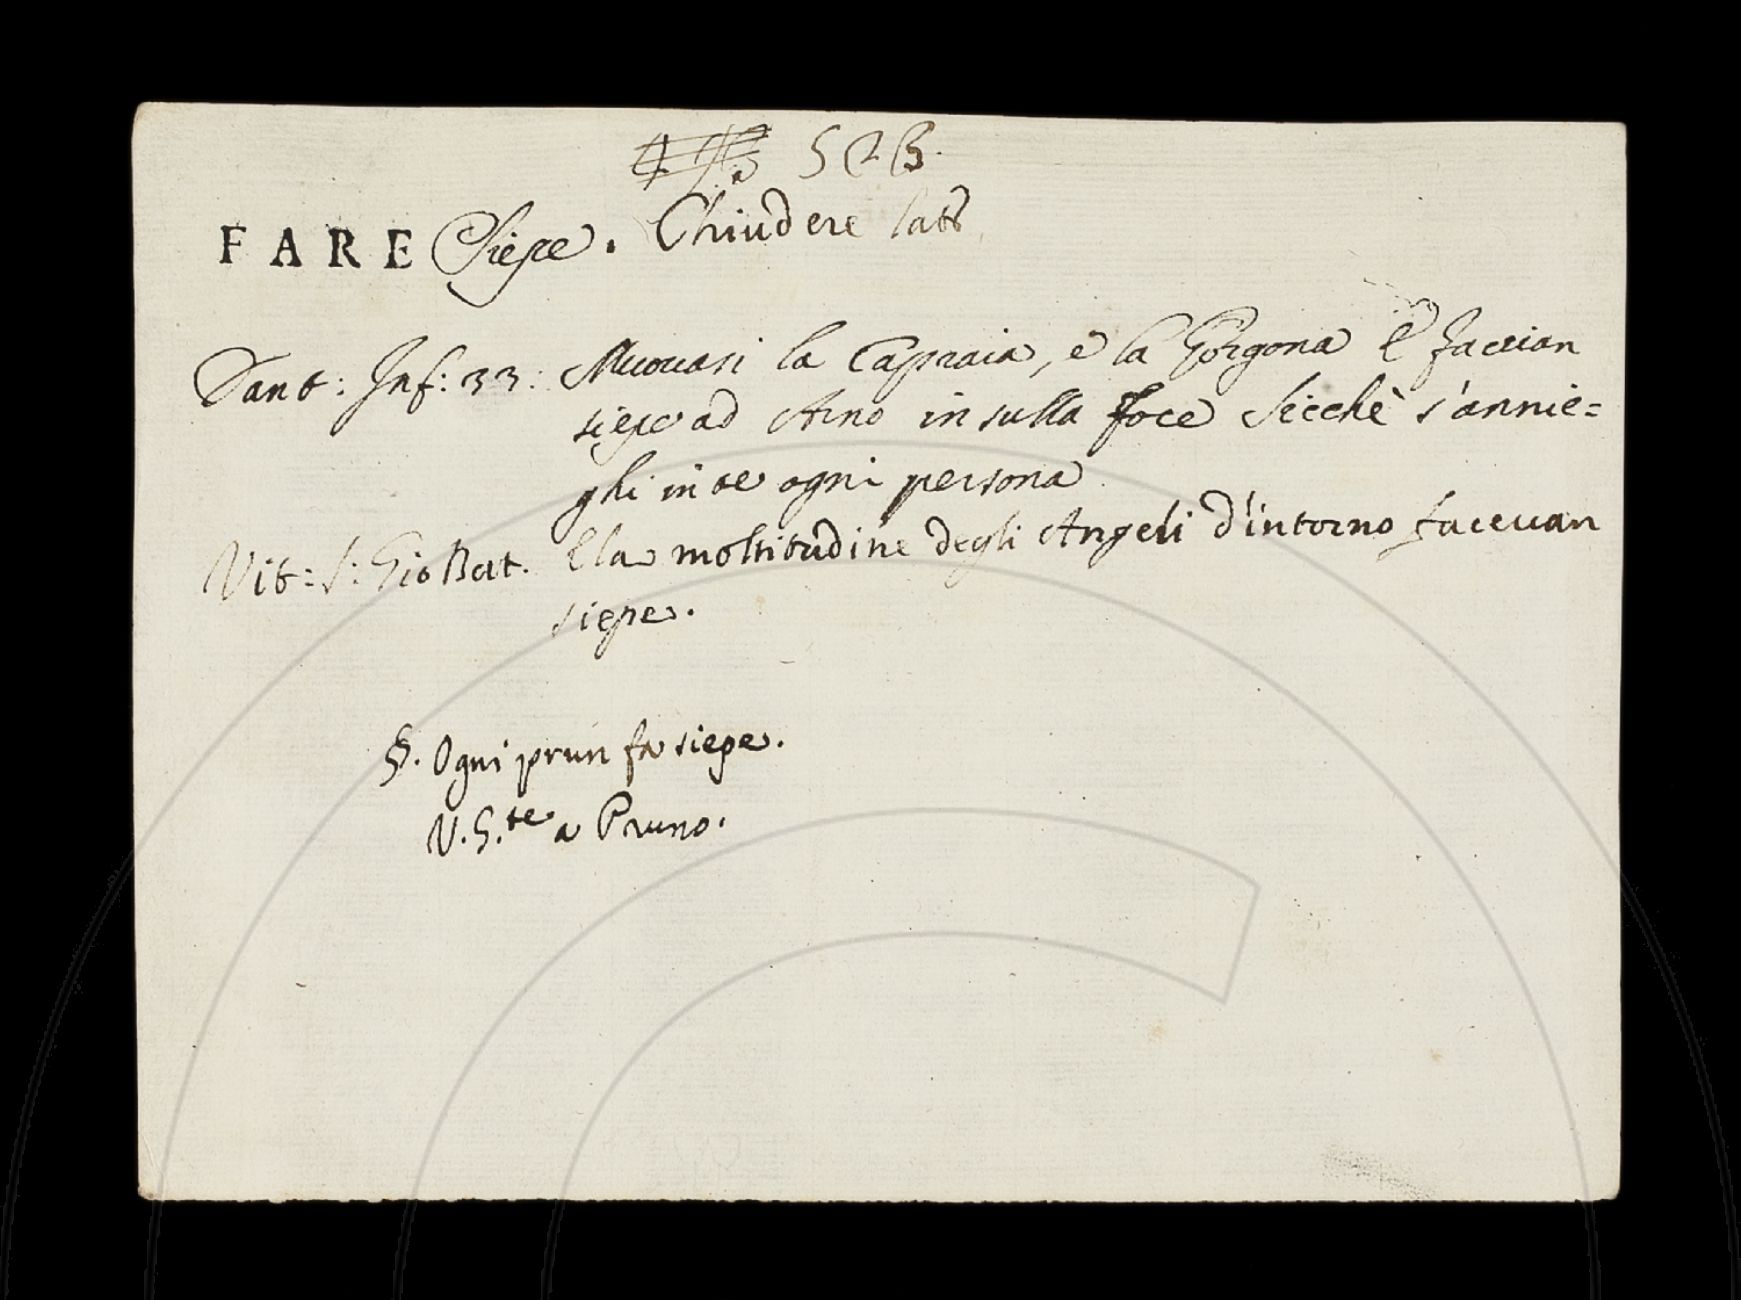 523.
FARE Siepe. Chiudere lat
Dant: Inf: 33: Muovasi la Capraia, e la Gorgona E faccian
siepe ad Arno in sulla foce Sicchè s'annie=
ghi in te ogni persona
Vit: S: Gio Bat. E la moltitudine degli Angeli d'intorno facevan
siepe.
§. Ogni prun fa siepe.
V. G.te a Pruno.